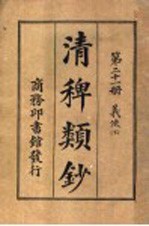 第二十一册 義俠(上)
清稗類鈔
商務印書館發行